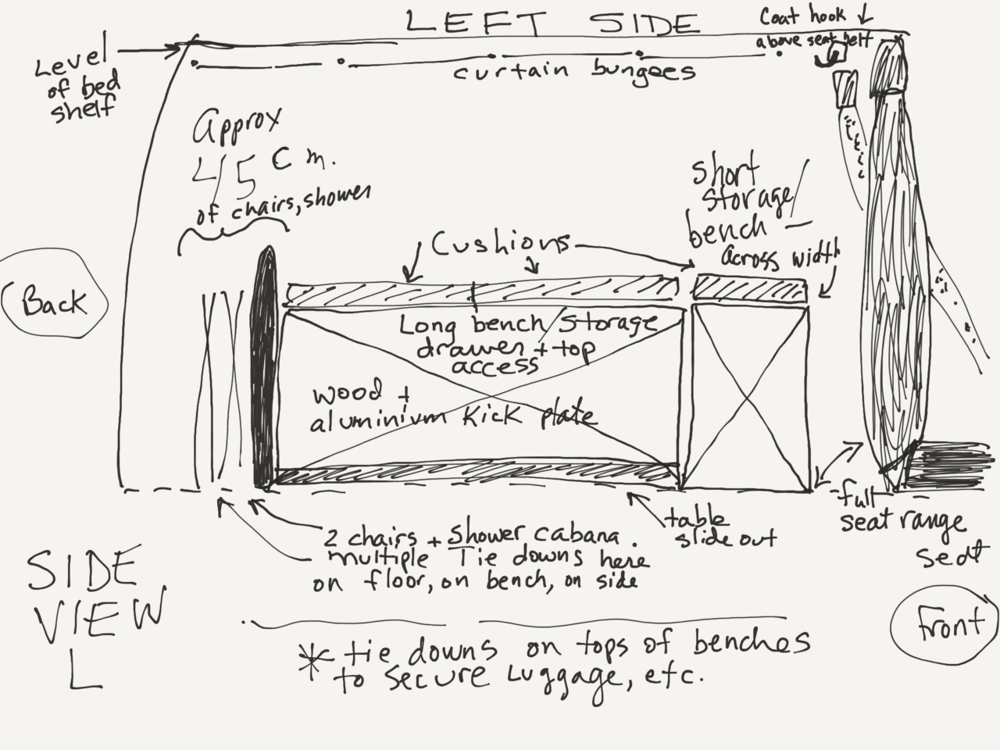 LEFT SIDE
Coat hook
above seat belt
Level
of bed
shelf
curtain bungees
Approx
45 cm.
of chairs, shower
short
storage
bench
Across width
Cushions
Back
Long bench/storage
drawer + top
access
wood +
aluminium kick plate
2 chairs + Shower cabana.
multiple Tie downs here
on floor, on bench, on side
table
slide out
full
seat range
seat
SIDE
VIEW
L
Front
* tie downs on tops of benches
to secure Luggage, etc.